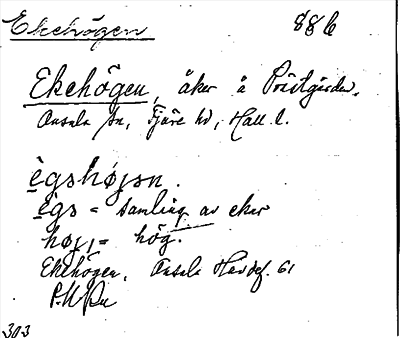 Ekehögen 886
Ekehögen, åker å Prästgården,
Onsala sn, Fjäre hd, Hall. l.
ègshøjən.
ègs = samling av ekar
høj = hög.
Ekehögen, Onsala 61
303